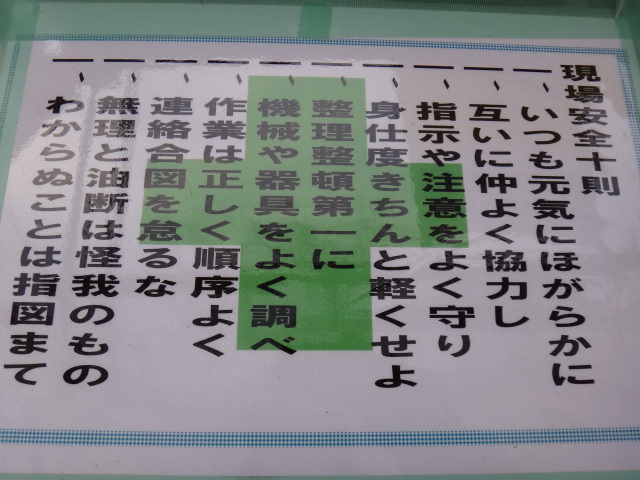 現場安全十則
一、いつも元気にほがらかに
一、互いに仲よく協力し
一、指示や注意をよく守り
一、身仕度きちんと軽くせよ
一、整理整頓第一に
一、機械や器具をよく調べ
一、作業は正しく順序よく
一、連絡合図を怠るな
一、無理と油断は怪我のもの
一、わからぬことは指図まて